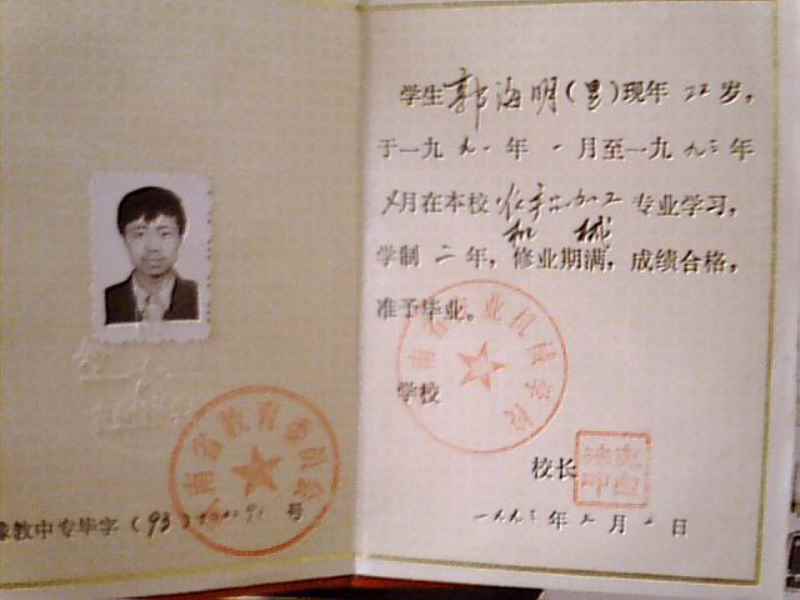 豫教中专毕字（93） 号
学生郭海明（男）现年22岁，
于一九九一年一月至一九九三年
月在本校 加工专业学习，
机械
学制二年，修业期满，成绩合格，
准予毕业。
学校
校长
一九九三年 月 日
南省教育委员会
南省 业机械学校